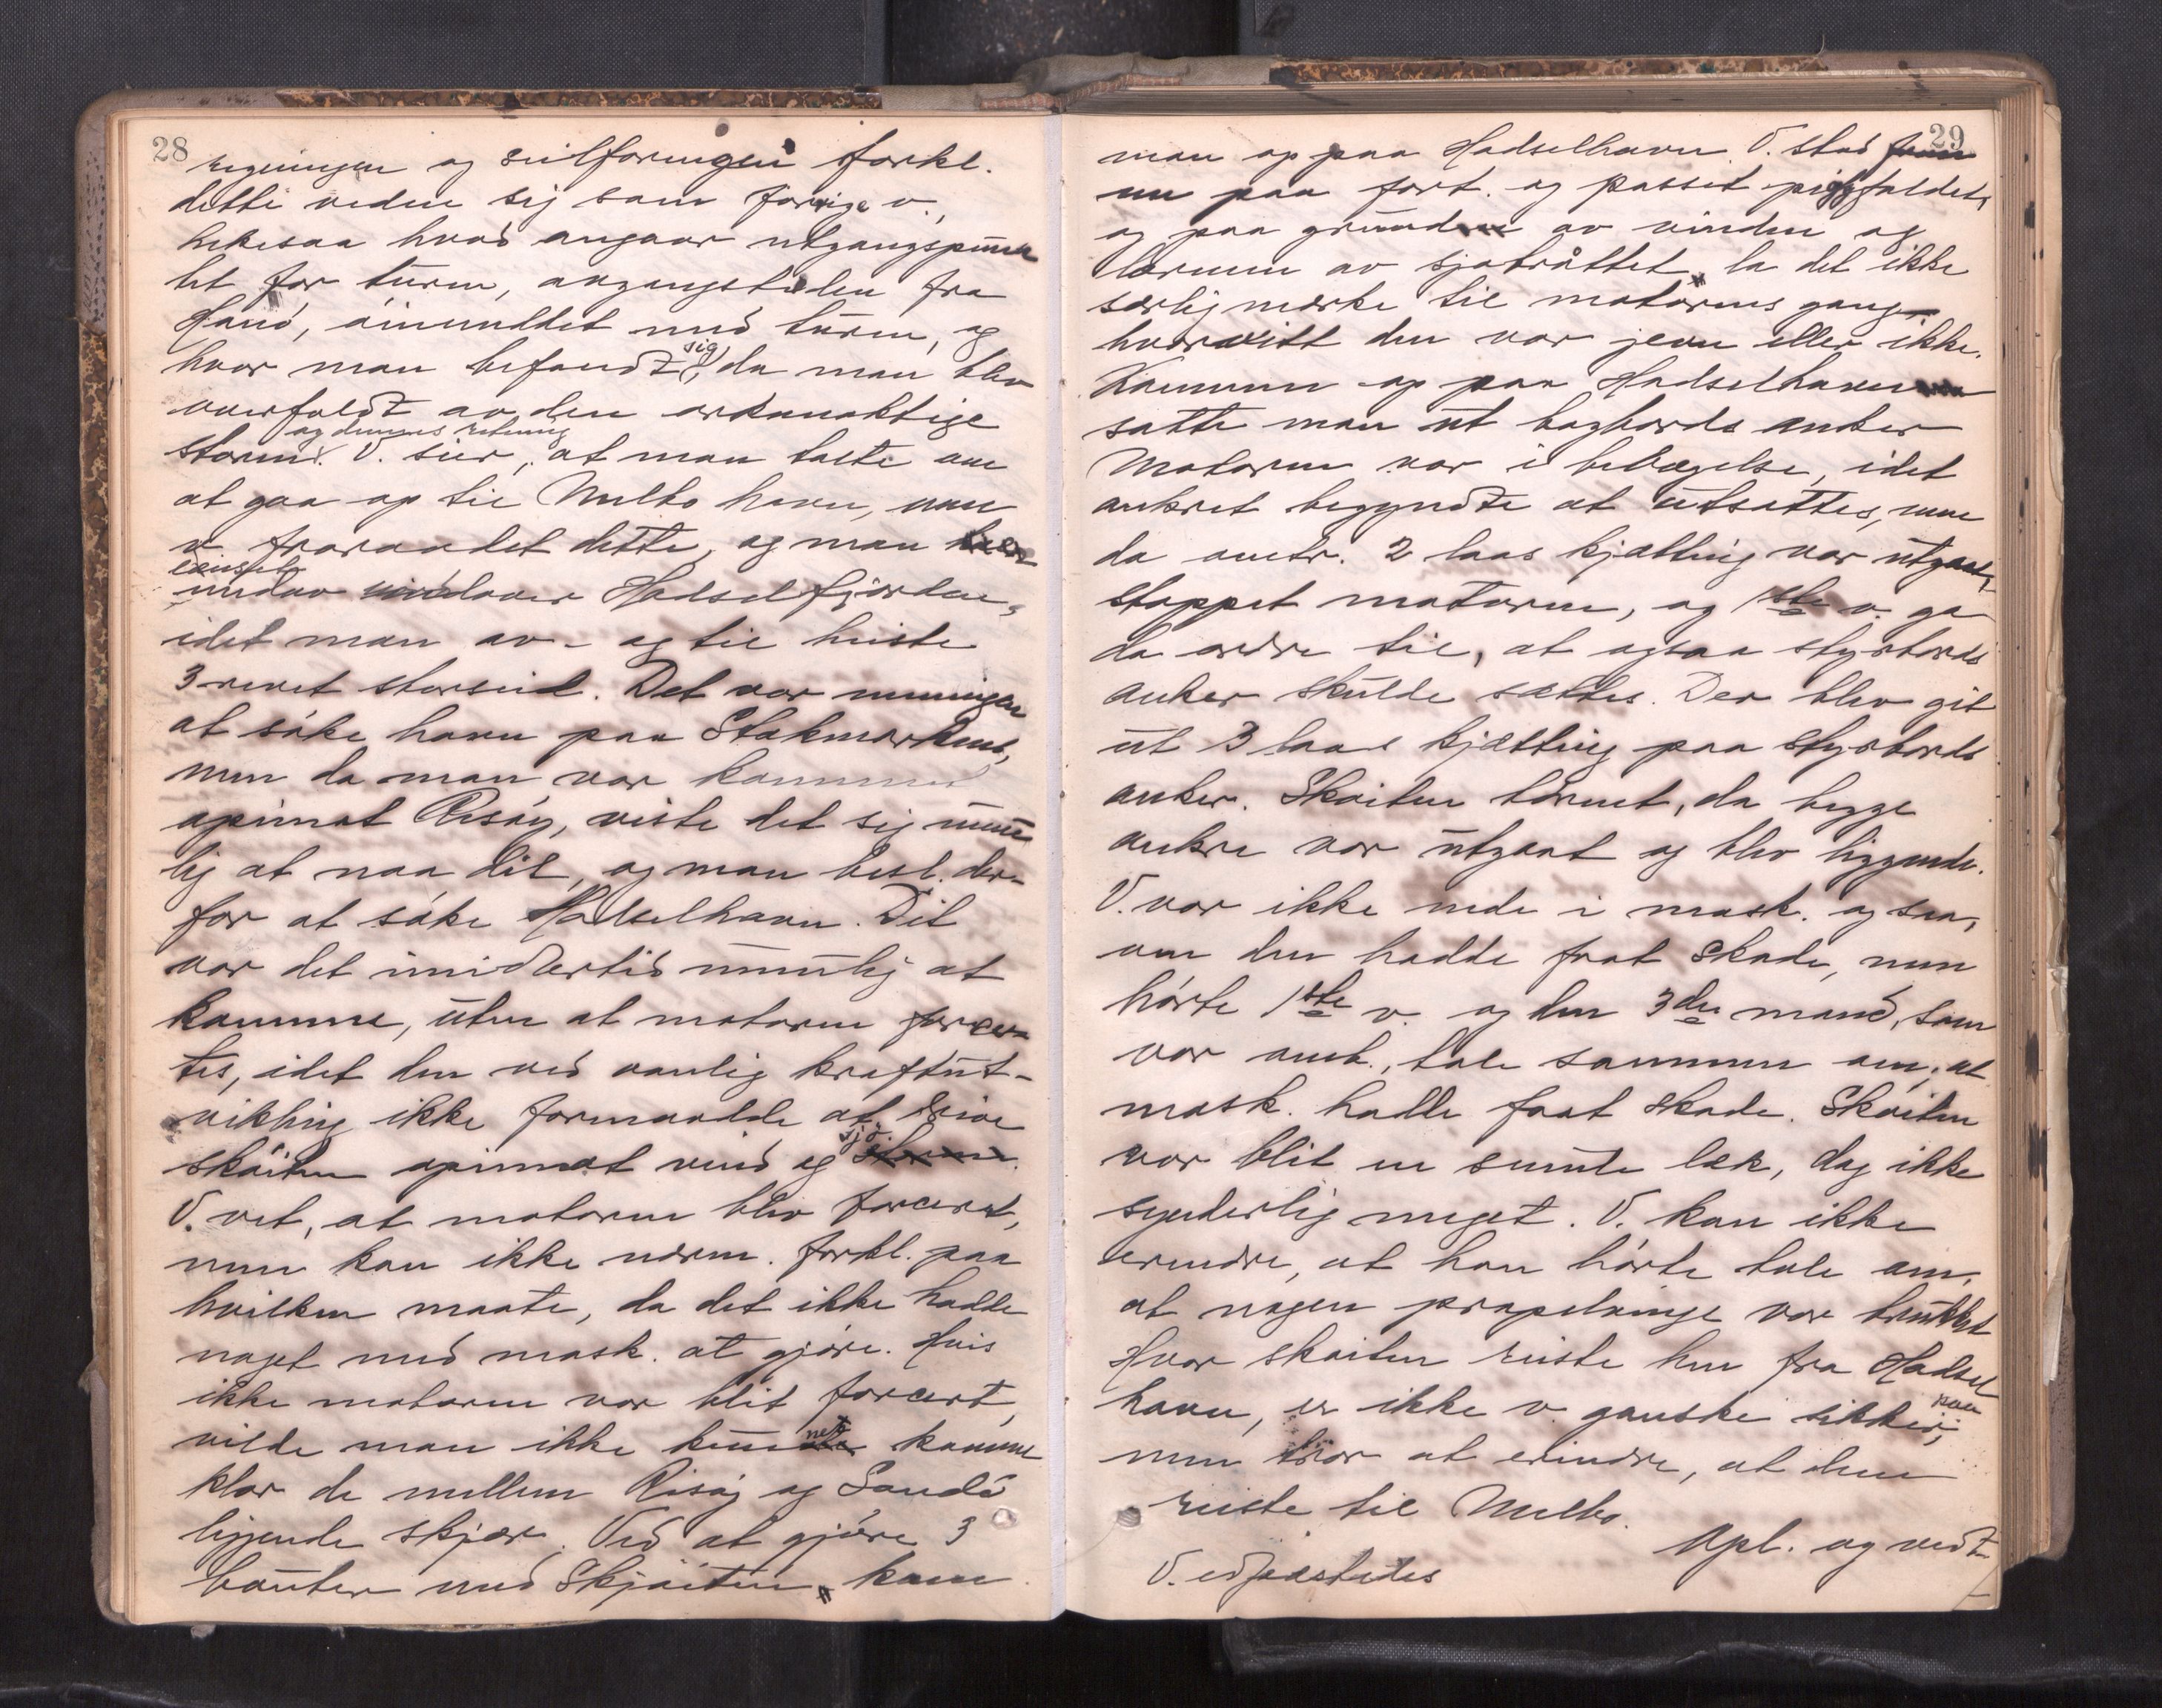 28
rigningen og seilføringen forkl.
dette vidne sig som forrige v.,
likesaa hvad angaar utgangspunk
tet for turen, avgangstiden fra
Hanö, öiemedet med turen, og
hvor man befandt sig, da man blev
overfaldt av den orkanaktige
storm og dennes retning. V. sier, at man talte om
at gaa op til Melbo havn, men
v. fraraadet dette, og man
lenset nedover Hadselfjorden,
idet man av- og til heiste
3 revet storseil. Det var meningen
at söke havn paa Stokmarknes,
men da man var kommet
opimot Risöy, viste det sig umu
lig at naa dit, og man besl. der-
for at söke Hadselhavn. Dit
var det imidlertid umulig at
komme, uten at motoren forcer-
tes, idet den ved vanlig kraftut-
vikling ikke formaadde at drive
sköiten opimot vind og sjö.
V. vet, at motoren blev forceret,
men kan ikke nærm. forkl. paa
hvilken maate, da det ikke hadde
noget med mask. at gjöre. Hvis
ikke motoren var blit forcert,
vilde man ikke kunnet komme
klar de mellem Risöy og Sandö
liggende skjær. Ved at gjöre 3
bauter med Skjöiten kom
29
man op paa Hadselhavn. V. stod
nu paa fort. og passet piggfaldet,
og paa grund av vinden og
larmen av sjöbråttet, la det ikke
særlig merke til motorens gang
hvorvitt den var jevn eller ikke.
Kommen op paa Hadselhavn
satte man ut bagbords anker
Motoren var i bevægelse, idet
ankret begyndte at utsattes, men
da omtr. 2 laas kjætting var utgaat,
stoppet motoren, og 1ste v. ga
da ordre til, at ogsaa styrbords
anker skulde sættes. Der blev git
ut 3 laas kjætting paa styrbords
anker. Skoiten törnet, da begge
ankre var utgaat og blev liggende.
V. var ikke nede i mask. og saa,
om den hadde faat skade, men
hörte 1ste v. og den 3die mand, som
var omb., tale sammen om, at
mask. hadde faat skade. Sköiten
var blit en smule læk, dog ikke
synderlig meget. V. kan ikke
erindre, at han hörte tale om,
at nogen propelvinge var brukket
Hvor skoiten reiste hen fra Hadsel
havn, er ikke v. ganske sikker paa,
men tror at erindre, at den
reiste til Melbo.
Opl. og vedt.
V. edfæstedes